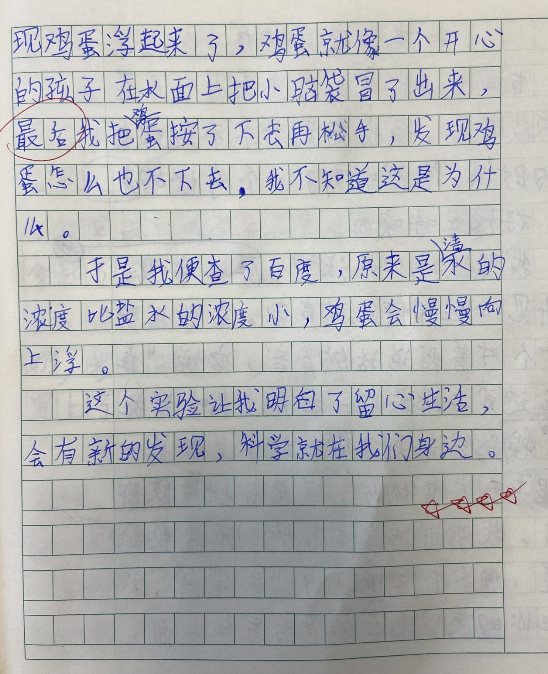 现鸡蛋浮起来了，鸡蛋就像一个开心
的孩子在水面上把小脑袋冒了出来，
最后我把鸡蛋按了下去再松手，发现鸡
蛋怎么也不下去，我不知道这是为什
么。
于是我便查了百度，原来是清水的
浓度比盐水的浓度小，鸡蛋会慢慢向
上浮。
这个实验让我明白了留心生活，
会有新的发现，科学就在我们身边。